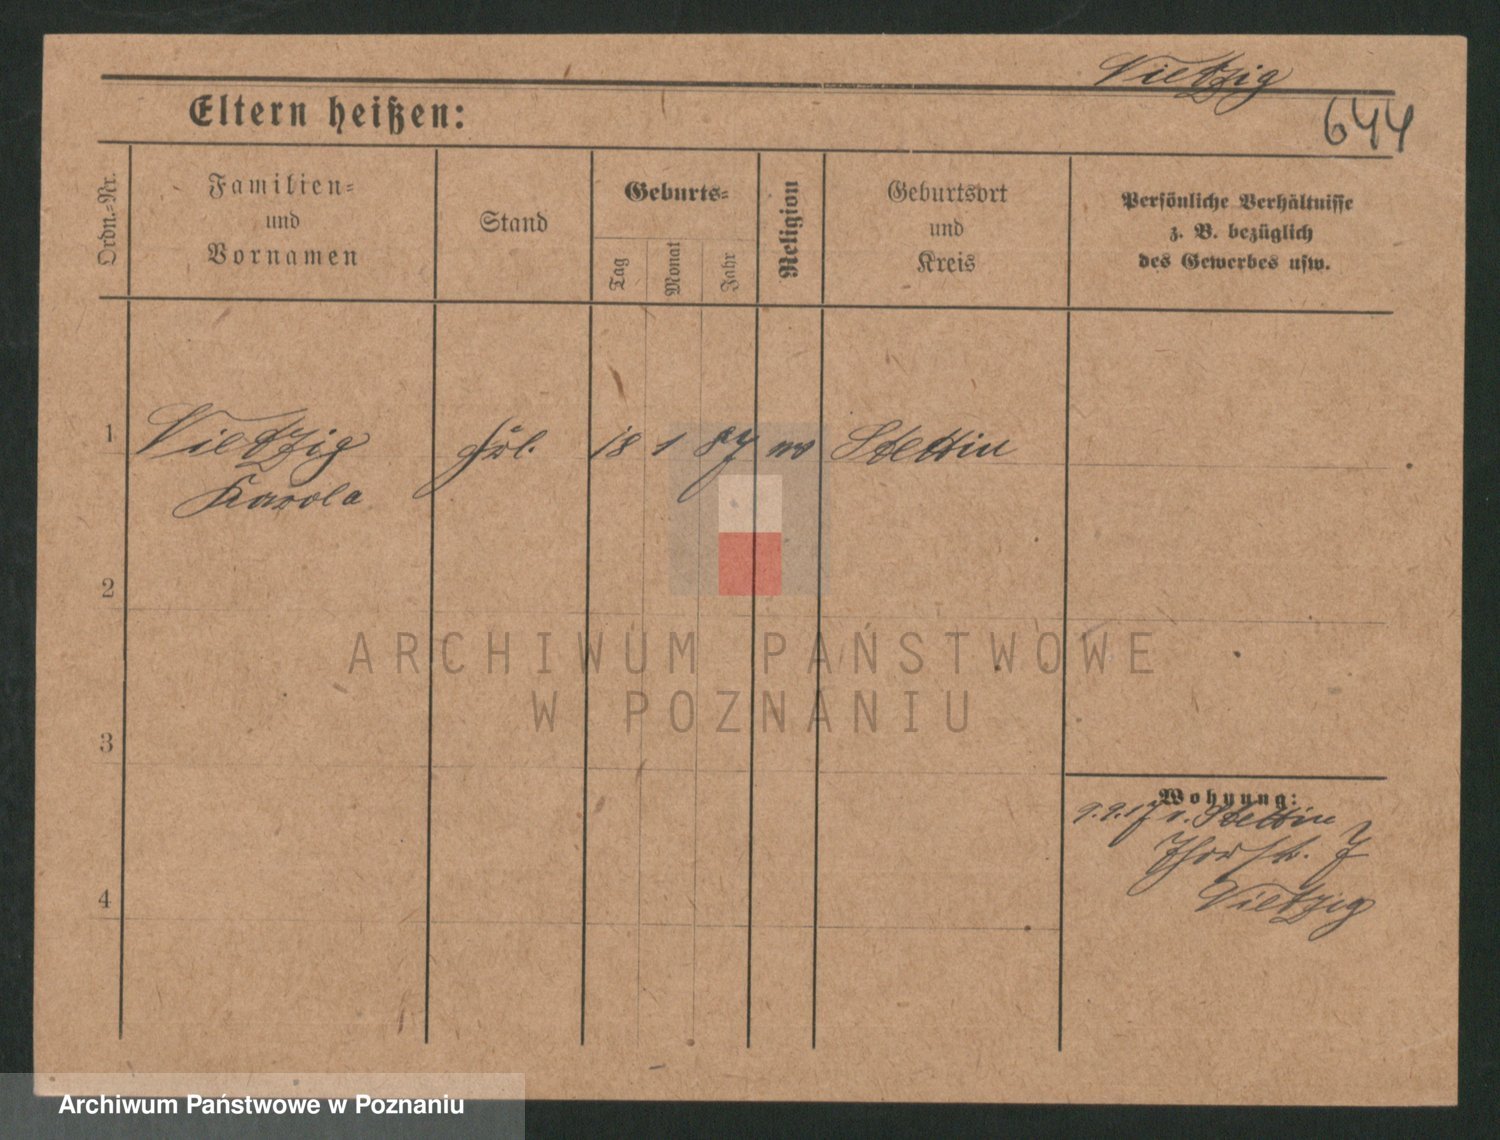 Vietzig
644
Eltern heißen:
Ordn.-Nr.
Familien-
und
Vornamen
Stand
Geburts-
Tag
Monat
Jahr
Religion
Geburtsort
und
Kreis
Persönliche Verhältnisse
z. B. bezüglich
des Gewerbes usw.
1
Vietzig
Karola
Frl.
18 1 87
Stettin
2
3
4
Wohnung:
9.9.17 v. Stettin
7
Vietzig
ARCHIWUM PAŃSTWOWE
W POZNANIU
Archiwum Państwowe w Poznaniu